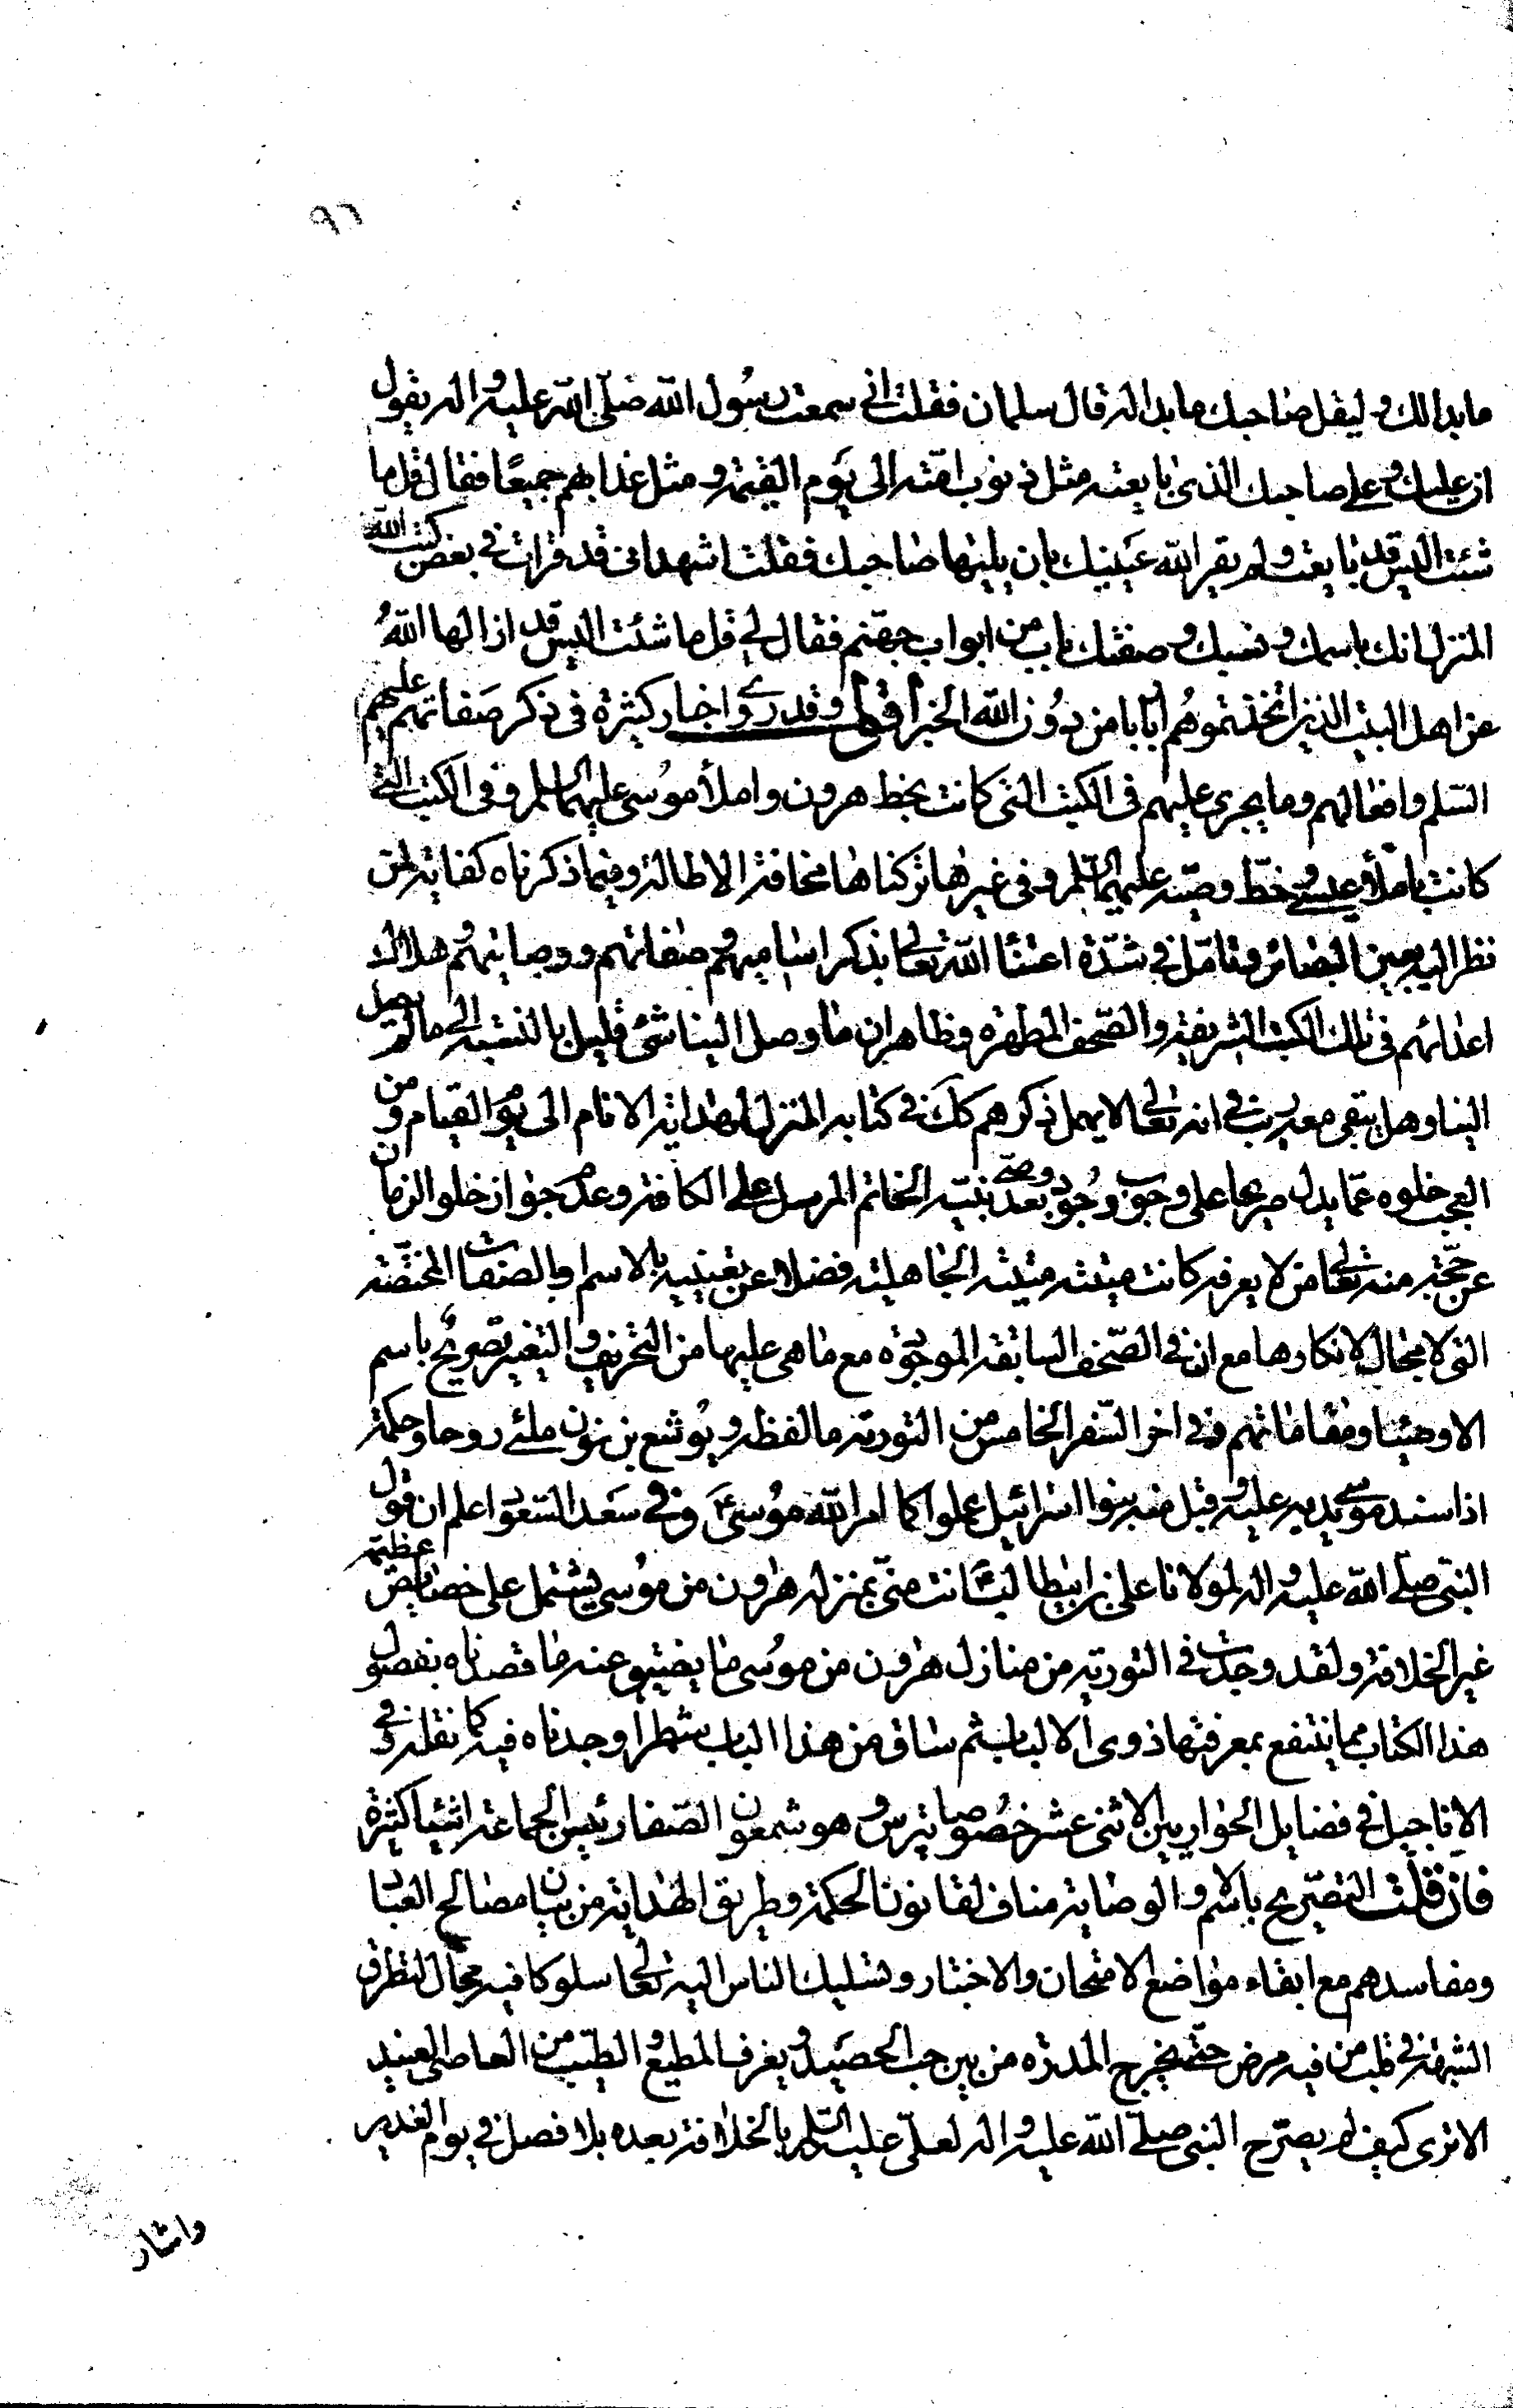 ٩٦
ما بدا لك و ليفل صاحبك ما بدا له قال سلمان فقلت انى سمعت رسول الله صلى الله عليه و اله يقول
ان عليك و على صاحبك الذى بايعته مثل ذنوب امته الى يوم القيمة و مثل عذابهم جميعًا فقال قل ما
شئت اليس قد بايعت و لم يقر الله عينيك بان يليها صاحبك فقلت اشهد انى قد قرات فى بعض كتب الله
المنزل انك باسمك و نسبك و صفتك باب من ابواب جهنم فقال لى قل ما شئت اليس قد ازالها اللهُ
عن اهل البيت الذين اتخذتموهُم اربابا من دون الله الخبر اقول و قد روى اخبار كثيرة فى ذكر صفاتهم عليهم
السلم و افعالهم و ما يجرى عليهم فى الكتب التى كانت بخط هرون و املأ موسى عليهما السلم و فى الكتب التى
كانت باملأ عيسى و خطّ وصيّه عليهما السّلم و فى غيرها تركناها مخافة الاطالة و فيما ذكرناه كفاية لمن
نظر اليه بعين البصائر و تامّل فى شدّة اعتنا الله تعالى بذكر اساميهم و صفاتهم و وصايتهم و هلاك
اعدائهم فى تلك الكتب الشريفة و الصّحف المطهرة و ظاهر ان ما وصل الينا شئ قليل بالنسبة الى ما لم يصل
الينا و هل يبقى معه ريب فى انه تعالى لا يهمل ذكرهم كك فى كتابه المنزل لهداية الانام الى يوم القيام و من
العجب خلوه عمّا يدل صريحا على وجوب وجود وصى بعد نبيّه الخاتم المرسل على الكافة و عدم جواز خلو الزمان
عن حجّة منه تعالى من لا يعرفه كانت ميتته ميتة الجاهلية فضلا عن تعيينه بالاسم او بالصفات المختصّة
التى لا مجال لانكارها مع ان فى الصّحف السابقة الموجودة مع ما هى عليها من التحريف و التغيير تصريحٌ باسم
الاوصياء و مقاماتهم ففى اخر السّفر الخامس من التورية ما لفظه و يوشع بن نون ملئ روحا و حكمة
اذا سند موسى يديه عليه و قبل منه بنوا اسرائيل عملوا كما امر الله موسى ع و فى سعد السعود اعلم ان قول
النبى صلى الله عليه و اله لمولانا على بن ابيطالب ع انت منّى بمنزلة هرون من موسى يشتمل على خصايص عظيمة
غير الخلافة و لقد وجدت فى التورية من منازل هرون من موسى ما يضيق عنه ما قصدناه بفصول
هذا الكتاب مما ينتفع بمعرفتها ذوى الالباب ثم ساق من هذا الباب شطرا وجدناه فيه كما نقله و فى
الاناجيل فى فضايل الحواريين الاثنى عشر خصُوصا پترس و هو شمعون الصّفا رئيس الجماعة اشيا كثيرة
فان قلت التصريح بالاسم و الوصاية مناف لقانون الحكمة و طريق الهداية من بيان مصالح العباد
و مفاسدهم مع ابقاء مواضع الامتحان و الاختبار و تسليك الناس اليه تعالى سلوكا فيه مجال لتطرق
الشبهة فى قلب من فيه مرض حتى يخرج المدرة من بين حب الحصيد و يعرف المطيع و الطيّب من العاصى العنيد
الا ترى كيف لم يصرّح النبى صلى الله عليه و اله لعلىّ عليه السّلم بالخلافة بعده بلا فصل فى يوم الغدير
و اشار